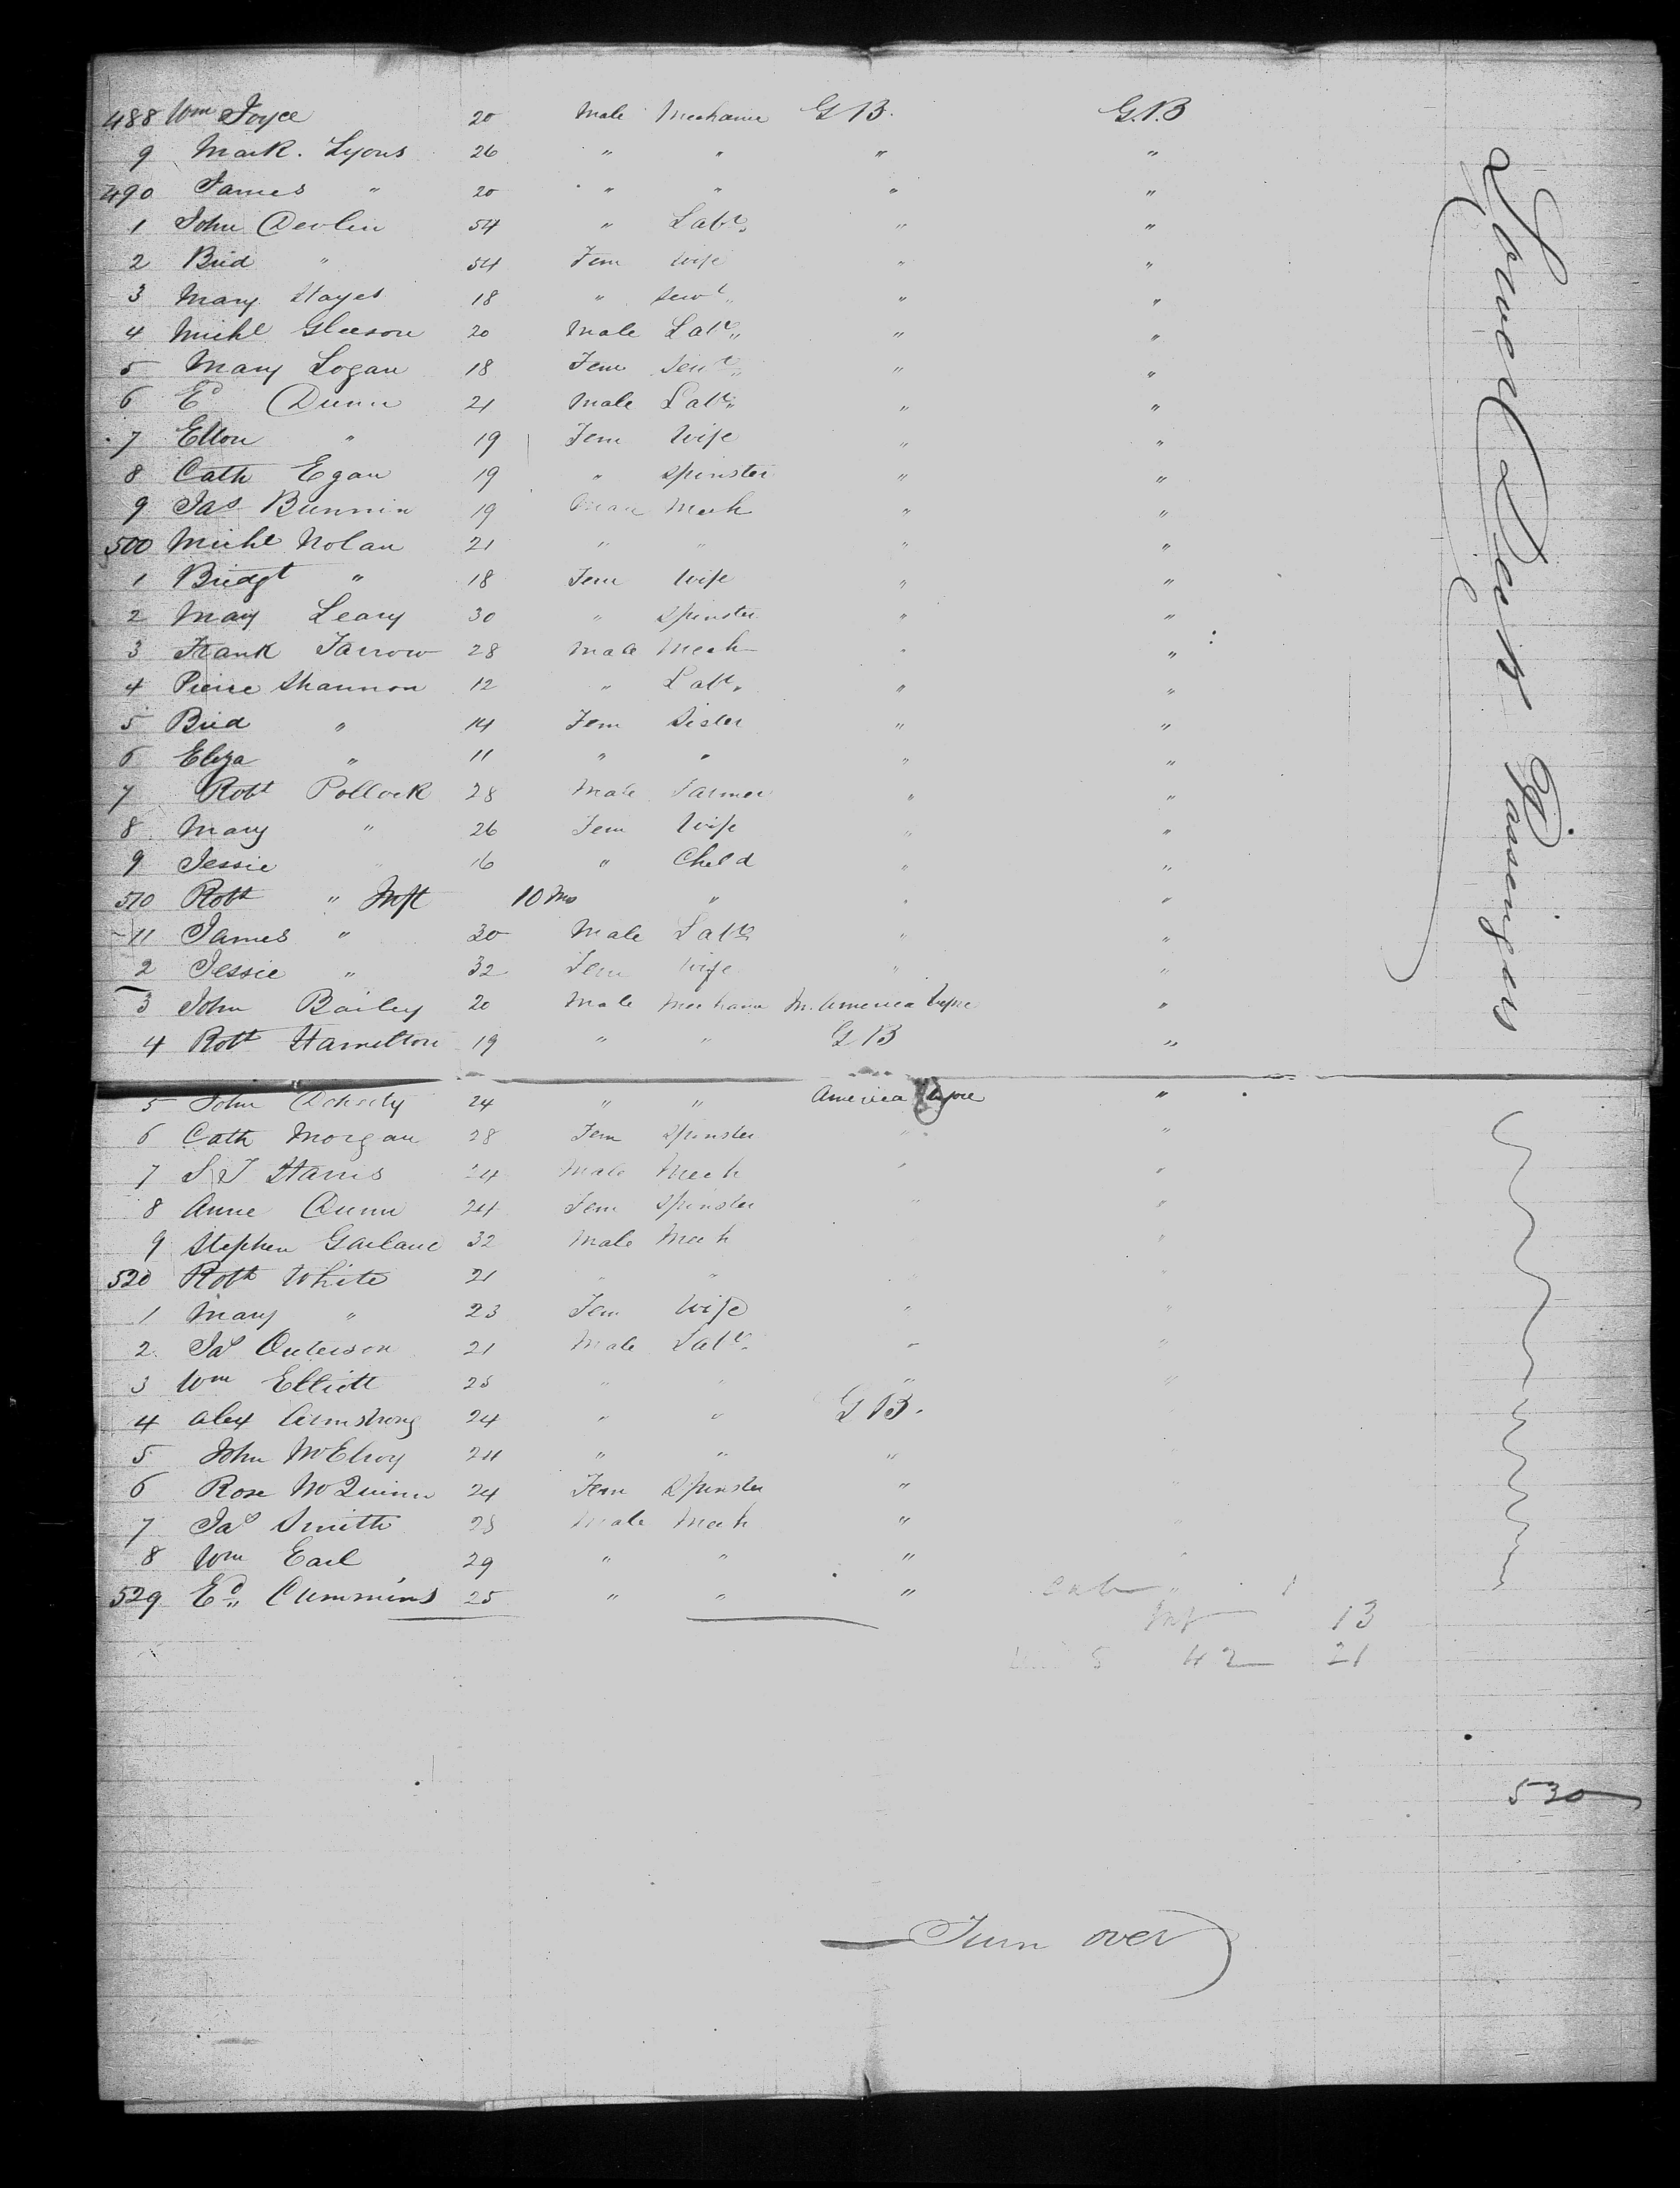 488 Wm Joyce 20 Male Mechanic G B. G.B
9 Mark. Lyons 26 " " " "
490 James " 20 " " " "
1 John Devlin 54 " Labr " "
2 Brid " 54 Fem Wife " "
3 Mary Hayes 18 " Servt " "
4 Michl Gleeson 20 Male Labr " "
5 Mary Logan 18 Fem Servt " "
6 Ed Dunn 21 Male Labr " "
7 Ellen " 19 Fem Wife " "
8 Cath Egan 19 " Spinster " "
9 Jas 19 Mech " "
500 Michl Nolan 21 " " " "
1 Bridgt " 18 Fem Wife " "
2 Mary Leary 30 " Spinster " "
3 Frank Farrow 28 Male Mech " "
4 Pierce Shannon 12 " Labr " "
5 Brid " 14 Fem Sister " "
6 Eliza " 11 " " " "
7 Robt Pollock 28 Male Farmer " "
8 Mary " 26 Fem Wife " "
9 Jessie " 16 " Child " "
510 Robt " Inft 10 Mo " " "
11 James " 30 Male Labr " "
2 Jessie " 32 Fem Wife " "
3 John Bailey 20 Male Mechanic N. America "
4 Robt Hamilton 19 " " G B "
5 John Doherty 24 " " America "
6 Cath Morgan 28 Fem Spinster " "
7 S J Harris 24 Male Mech " "
8 Anne Dunn 24 Fem Spinster " "
9 Stephen Garland 32 Male Mech "
520 Robt White 21 " " "
1 Mary " 23 Fem Wife " "
2 Jas 21 Male Labr " "
3 Wm Elliott 25 " " " "
4 Alex Armstrong 24 " " G B. "
5 John McElroy 24 " " "
6 Rose McQuinn 24 Fem Spinster "
7 Jas Smith 25 Male Mech "
8 Wm Earl 29 " " " "
529 Ed Cummins 25 " " "
1
Inf 13
5 42 21
530
Turn over
Lower Deck Passengers